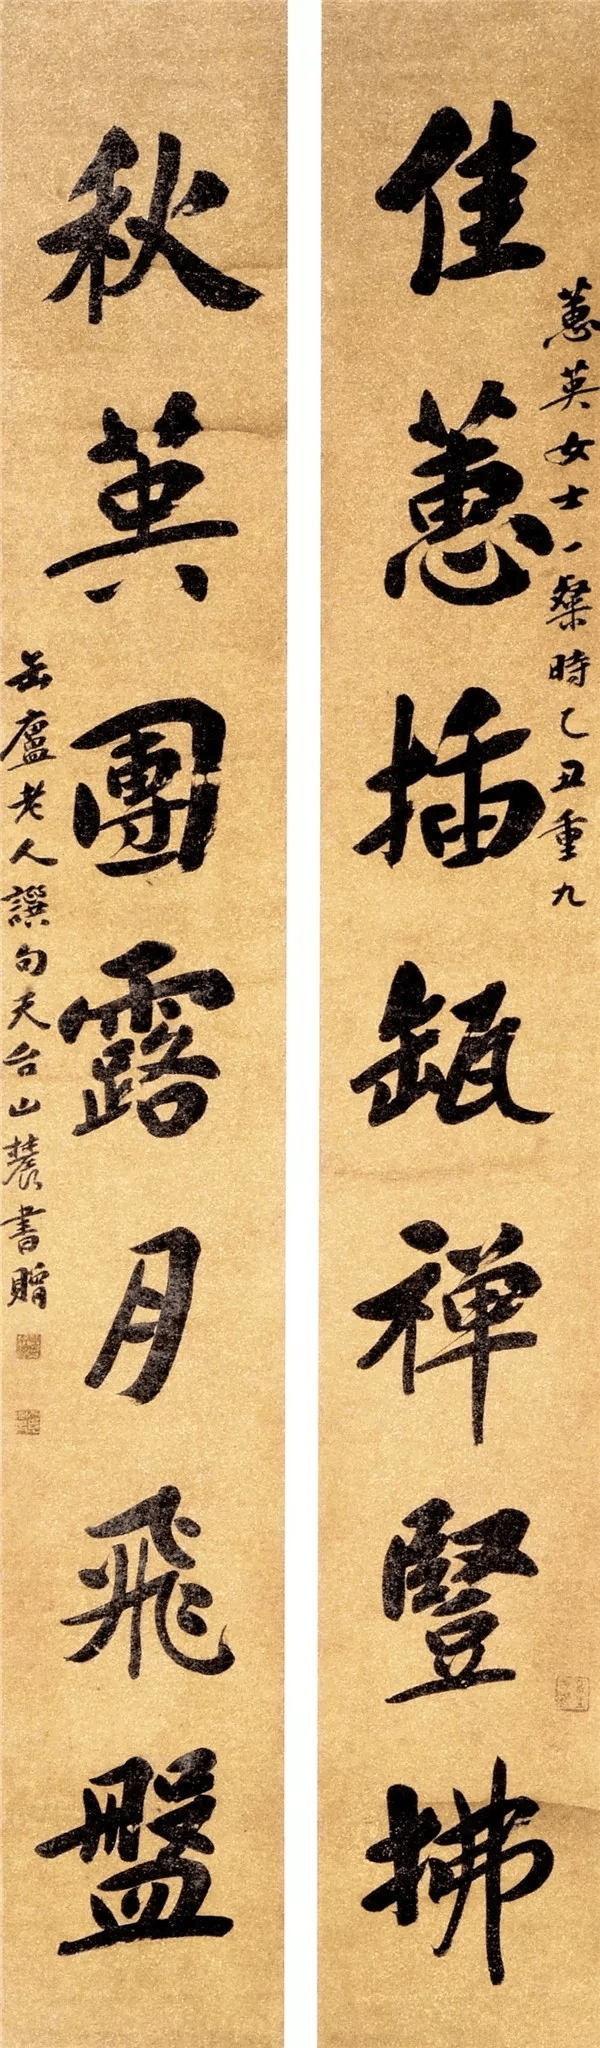 佳蕙插瓶禅豎拂
蕙英女士一粲時乙丑重九
秋英團露月飛盤
缶廬老人譔句天台山農書贈